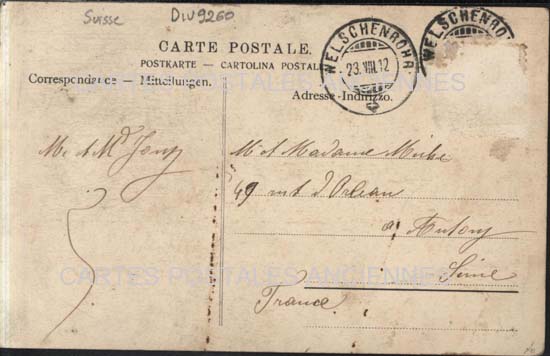 Suisse
Div9260
CARTE POSTALE.
POSTKARTE — CARTOLINA POSTALE
Correspondance — Mitteilungen.
Adresse-Indirizzo.
WELSCHENROHR
23.VIII.12
WELSCHENROHR
M. et Md
M. et Madame
49 rue d'Orléan
a Antony
Seine
France
CARTES POSTALES ANCIENNES
CARTES POSTALES ANCIENNES